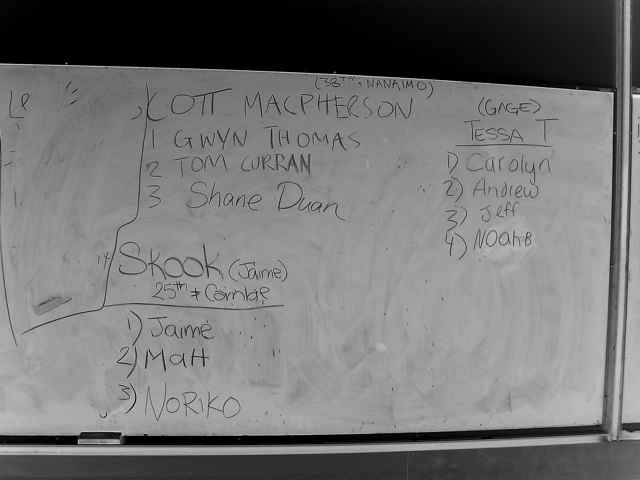 Le
(38TH + NANAIMO)
SCOTT MACPHERSON
1 GWYN THOMAS
2 TOM CURRAN
3 Shane Duan
(GAGE)
TESSA T
1) Carolyn
2) Andrew
3) Jeff
4) Noah B
SKOOK (Jaime)
25th + Cambie
1) Jaime
2) Matt
3) NORIKO